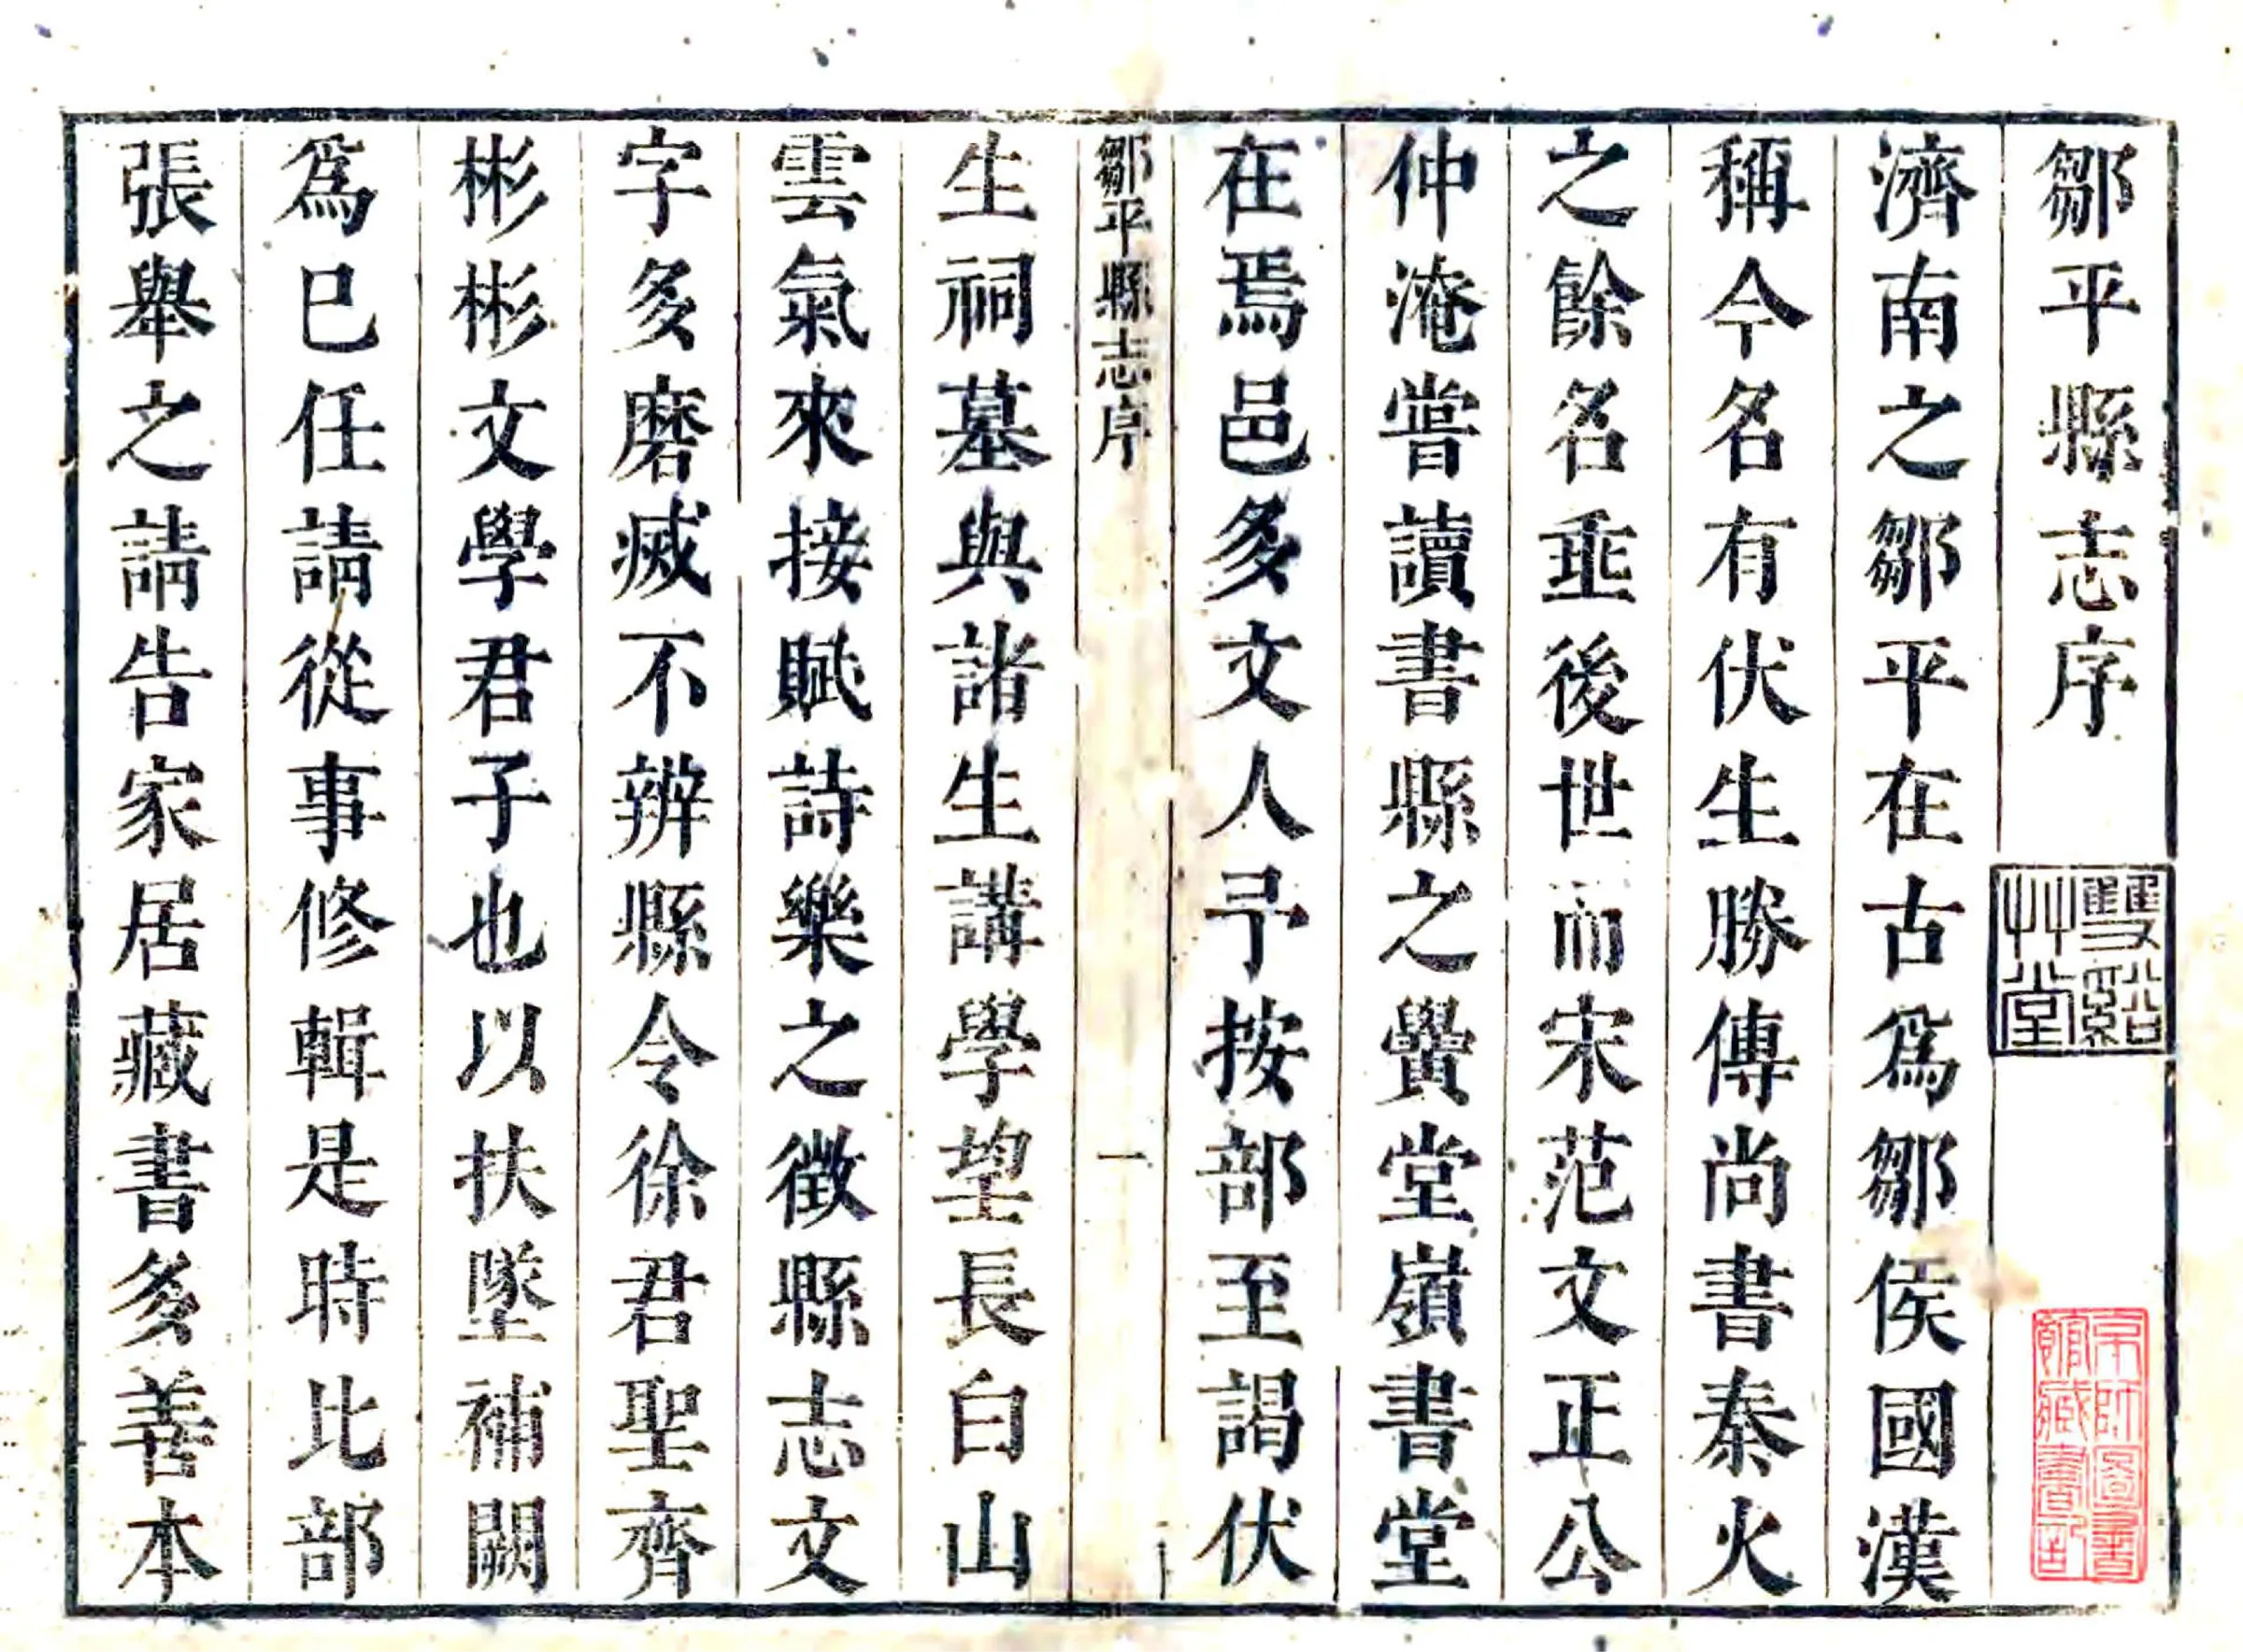 鄒平縣志序
濟南之鄒平在古爲鄒侯國漢
稱今名有伏生勝傳尚書秦火
之餘名垂後世而宋范文正公
仲淹嘗讀書縣之黌堂嶺書堂
在焉邑多文人予按部至謁伏
鄒平縣志序
一
生祠墓與諸生講學望長白山
雲氣來接賦詩樂之徴縣志文
字多磨滅不辨縣令徐君聖齊
彬彬文學君子也以扶墜補闕
爲巳任請從事修輯是時比部
張舉之請告家居藏書多善本
雙谿
艸堂
京師圖書
館藏書記